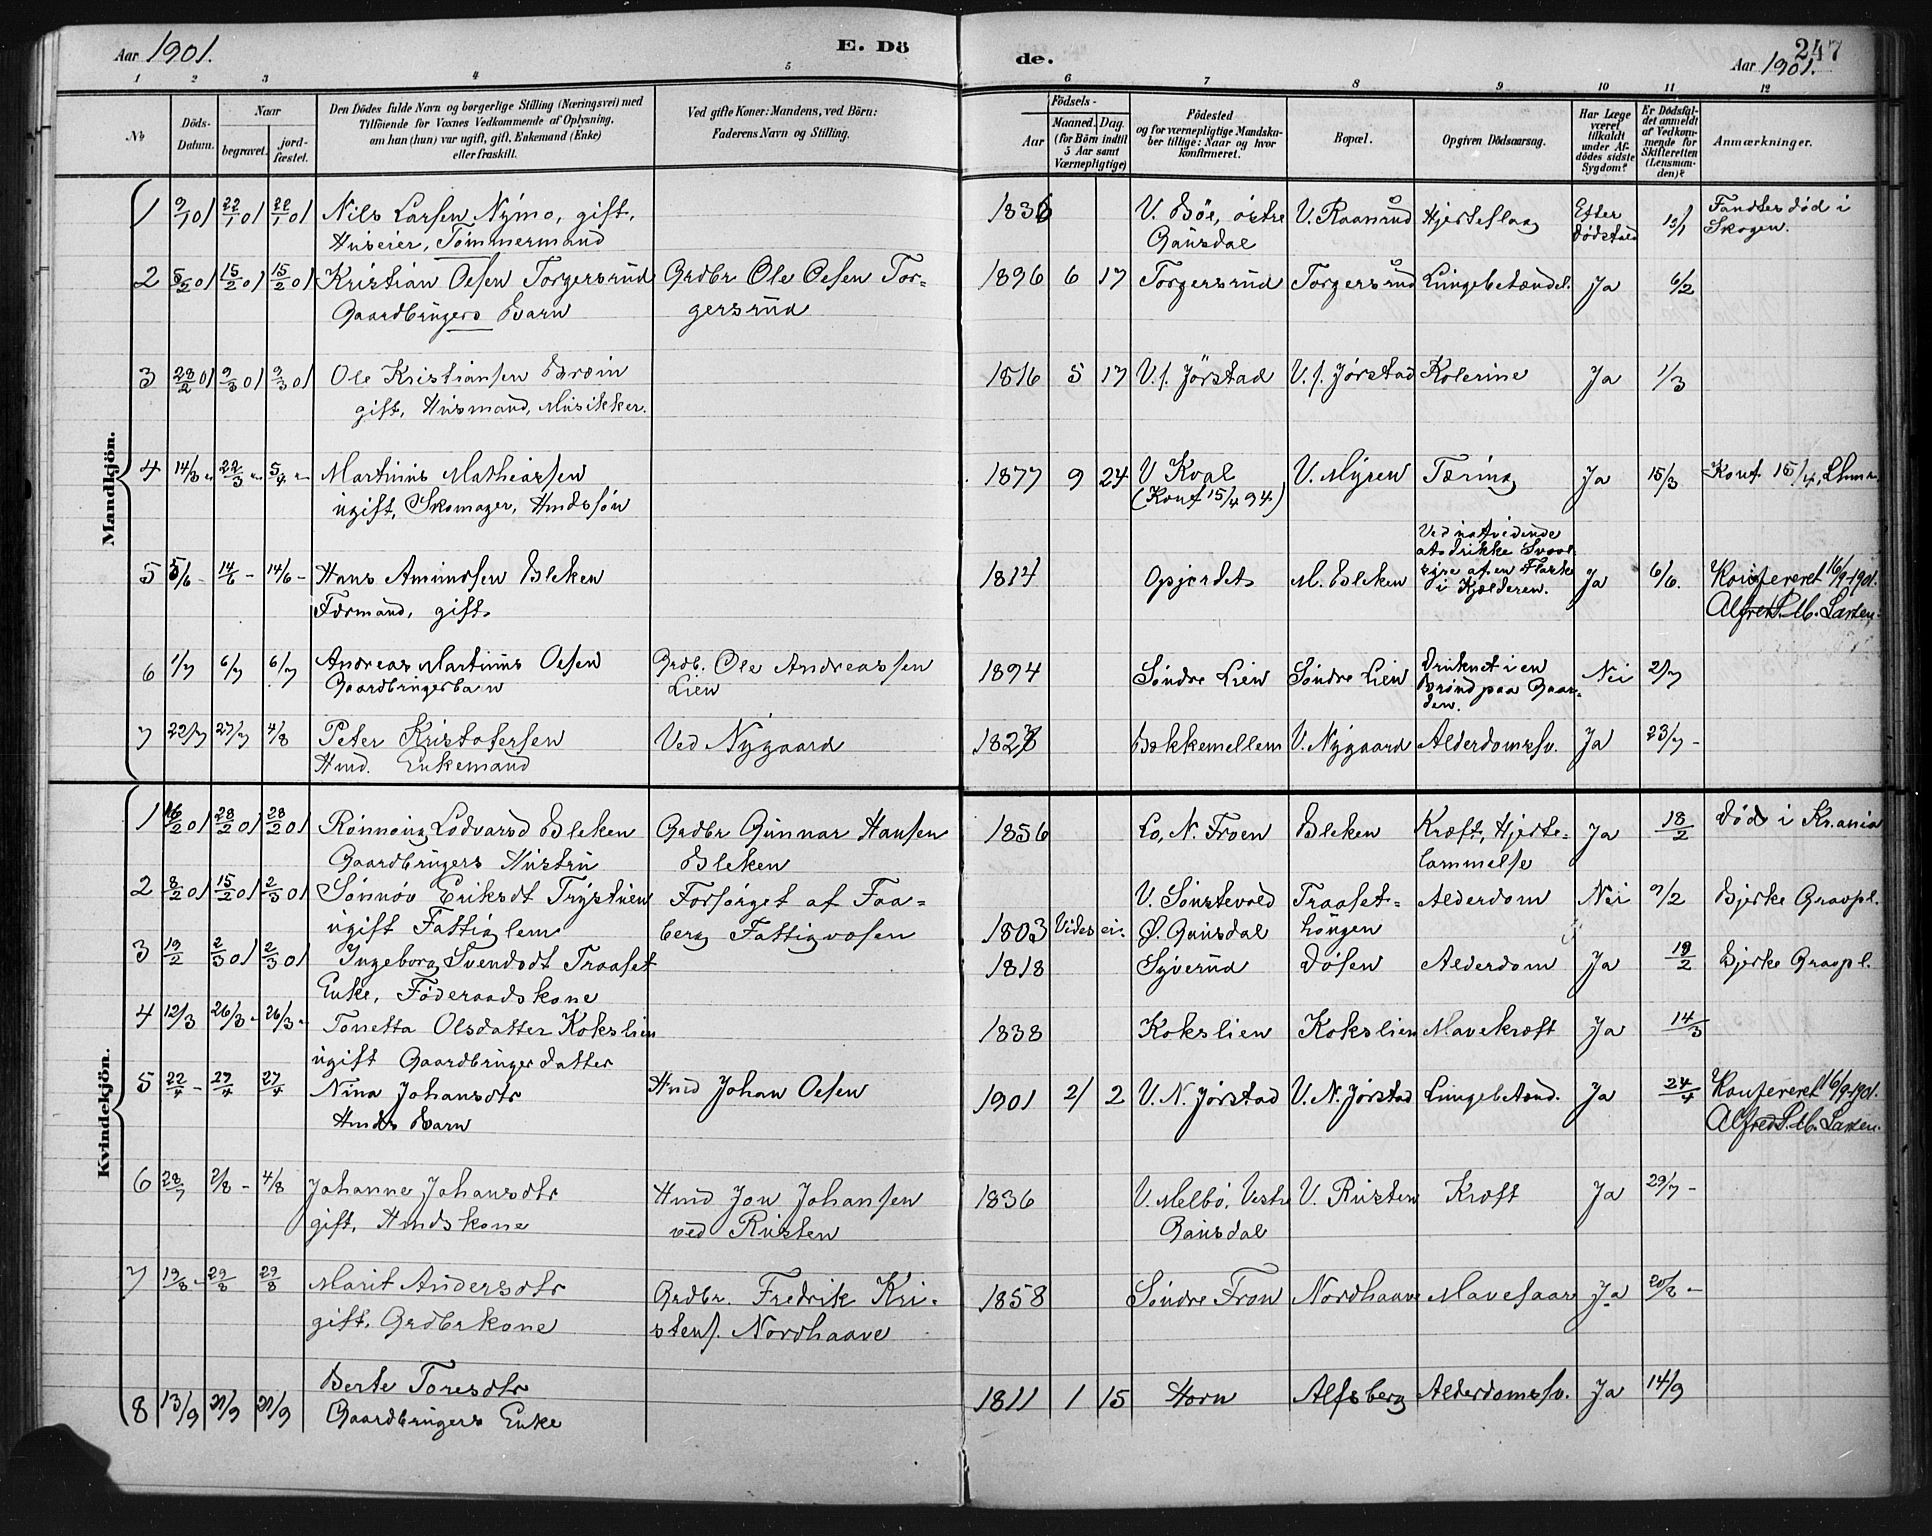 Aar 1901. E. Dö de. 247 Aar 1901.
1 2 3 4 5 6 7 8 9 10 11 12
№ Döds-Datum. Naar begravet. jordfæstet. Den Dödes fulde Navn og borgerlige Stilling (Næringsvei) med Tilföiende for Voxnes Vedkommende af Oplysning, om han (hun) var ugift, gift, Enkemand (Enke) eller fraskilt. Ved gifte Koner: Mandens, ved Börn: Faderens Navn og Stilling. Födsels- Aar Maaned. Dag. (for Börn indtil 5 Aar samt Værnepligtige) Födested og for værnepligtige Mandskaber tillige: Naar og hvor konfirmeret. Bopæl. Opgiven Dödsaarsag. Har Læge været tilkaldt under Afdödes sidste Sygdom? Er Dödsfaldet anmeldt af Vedkommende for Skifteretten (Lensmanden)? Anmærkninger.
Mandkjön.
1 9/1 01 22/1 01 22/1 01 Nils Larsen Nymo, gift, 1836 V. Böe, östre V. Raanrud Hjerteslag Efter dödsfald 13/1 Fandtes död i Skogen.
Huseier, Tömmermand Gausdal
2 5/2 01 15/2 01 15/2 01 Kristian Olsen Torgersrud Grdbr Ole Olsen Tor- 1896 6 17 Torgersrud Torgersrud Lungebetændel. Ja 6/2
Gaardbrugers Barn gersrud
3 28/2 01 9/3 01 9/3 01 Ole Kristiansen Broin 1816 5 17 V. s. Jörstad V. s. Jörstad Kolerine Ja 1/3
gift, Husmand, Musikker.
4 14/3 " 22/3 " 5/4 " Martinus Mathiassen 1877 9 24 V Kval V. Myren Tæring Ja 15/3 Konf. 15/4,
ugift, Skomager, Hmdssön (Konf 15/4 94)
5 5/6 - 14/6 - 14/6 - Hans Amundsen Bleken 1814 Opjordet M. Bleken Ved uafvidende at drikke Svovlsyre af en Flaske i Kjælderen. Ja 6/6. Konfereret 16/9-1901.
Formand, gift. Alfred S. M. Larsen.
6 1/7 6/7 6/7 Andreas Martinus Olsen Grdb. Ole Andreassen 1894 Söndre Lien Söndre Lien Druknet i en Brönd paa Gaarden. Nei 2/7
Gaardbrugerbarn Lien
7 22/7 27/7 4/8 Peter Kristofersen Ved Nygaard 1823 Bækkemellem V. Nygaard Alderdomssv. Ja 23/7 -
Hmd. Enkemand
Kvindekjön.
1 16/2 01 28/2 01 28/2 01 Rönnaug Lodvarsd Bleken Grdbr Gunnar Hansen 1856 Lo, N. Froen Bleken Kræft, Hjerte- Ja 18/2 Död i Kr.ania
Gaardbrugers Hustru Bleken lammelse
2 8/2 01 15/2 01 2/3 01 Sönnöv Eriksdt Trystuen Forsörget af Faa- 1803 Vides ei. V. Sönstevold Traaset- Alderdom Nei 9/2 Bjerke Gravpl.
ugift Fattiglem berg Fattigvæsen Ö. Gausdal Löugen
3 19/2 2/3 01 2/3 01 Ingeborg Svendsdt Traaset 1818 Syverud Dösen Alderdom Ja 19/2 Bjerke Gravpl.
Enke, Föderaadskone
4 12/3 26/3 " 26/3 " Tonetta Olsdatter Kokslien 1838 Kokslien Kokslien Mavekræft Ja 14/3
ugift Gaardbrugerdatter
5 22/4 - 27/4 27/4 Nina Johansdtr Hmd Johan Olsen 1901 2/ 2 V. N. Jörstad V. N. Jörstad Lungebetænd. Ja 24/4 Konfereret 16/9-1901.
Hmds Barn Alfred S. M. Larsen.
6 28/7 2/8 - 4/8 Johanne Johansdtr Hmd Jon Johansen 1836 V. Melbö, Vestre V. Rusten Kræft Ja 29/7 -
gift, Hmdskone ved Rusten Gausdal
7 19/8 - 29/8 29/8 Marit Andersdtr Grdbr. Fredrik Kri- 1858 Söndre Fron Nordhaave Mavesaar Ja 20/8 -
gift, Grdbrkone stens. Nordhaave
8 13/9 21/9 21/9 Berte Toresdtr 1811 1 15 Horn Alfsberg Alderdomssv. Ja 14/9
Gaardbrugers Enke